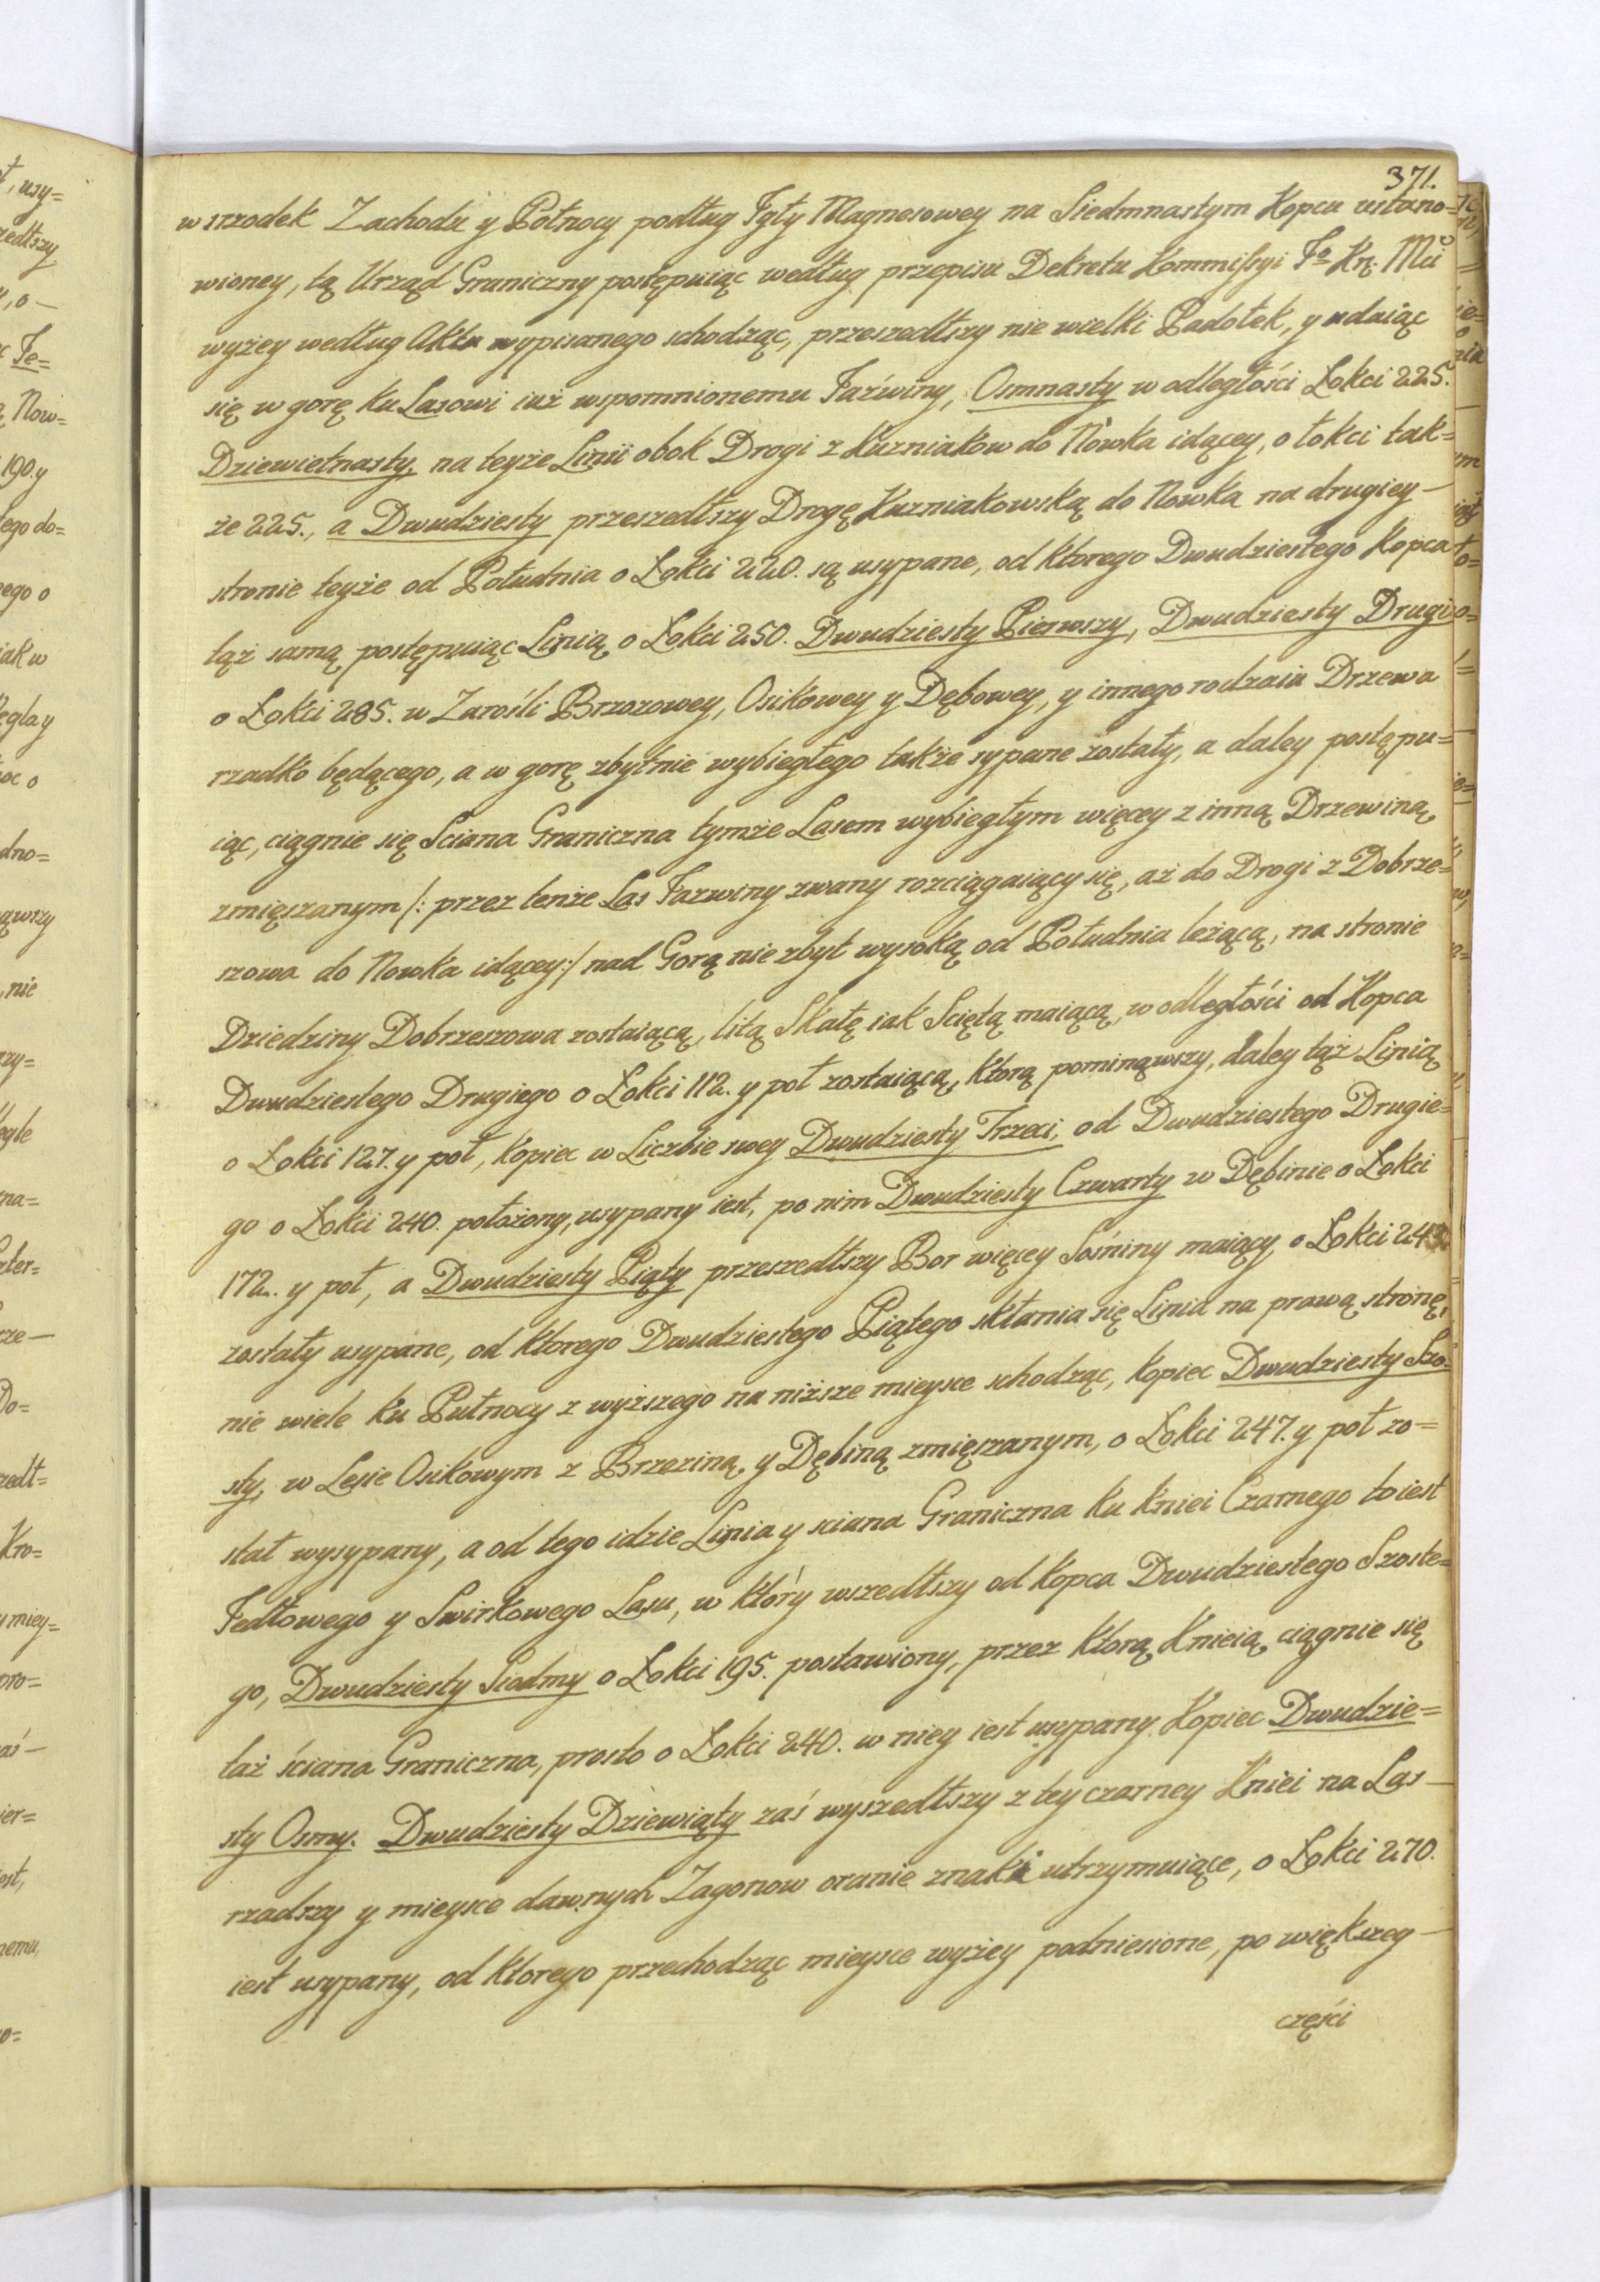 371.
w srzodek Zachodu y Połnocy podług Jgły Magnesowey na Siedmnastym Kopcu ustano=
wioney, tą Urząd Graniczny postępuiąc według przepisu Dekretu Kommissyi Jo Kr. Mci
wyżey według Aktu wypisanego schodząc, przeszedłszy nie wielki Padołek, y udaiąc
się w gorę ku Lasowi iuż wspomnionemu Jaźwiny, Osmnasty w odległości Łokci 225.
Dziewietnasty, na teyże Linii obok Drogi z Kuzniakow do Nowka idącey, o łokci tak=
że 225., a Dwudziesty przeszedłszy Drogę Kuzniakowską do Nowka na drugiey —
stronie teyże od Południa o Łokci 220. są usypane, od ktorego Dwudziestego Kopca
tąż samą postępuiąc Linią o Łokci 250. Dwudziesty Pierwszy, Dwudziesty Drugi
o Łokci 285. w Zarośli Brzozowey, Osikowey y Dębowey, y innego rodzaiu Drzewa
rzadko będącego, a w gorę zbytnie wybiegłego także sypane zostały, a daley postępu=
iąc, ciągnie się Sciana Graniczna tymże Lasem wybiegłym więcey z inną Drzewiną
zmięszanym /: przez tenże Las Jazwiny zwany rozciągaiący się, aż do Drogi z Dobrze=
szowa do Nowka idącey :/ nad Gorą nie zbyt wysoką od Południa leżącą, na stronie
Dziedziny Dobrzeszowa zostaiącą, litą Skałę iak Sciętą maiącą, w odległości od Kopca
Dwudziestego Drugiego o Łokci 112. y poł zostaiącą, ktorą pominąwszy, daley tąż Linią
o Łokci 127. y poł, kopiec w Liczbie swey Dwudziesty Trzeci, od Dwudziestego Drugie=
go o Łokci 240. położony, usypany iest, po nim Dwudziesty Czwarty w Dębinie o Łokci
172. y poł, a Dwudziesty Piąty przeszedłszy Bor więcey Sośniny maiący, o Łokci
zostały usypane, od ktorego Dwudziestego Piątego skłania się Linia na prawą stronę,
nie wiele ku Pułnocy z wyższego na niższe mieysce schodząc, kopiec Dwudziesty Szo=
sty, w Lesie Osikowym z Brzeziną, y Dębiną zmięszanym, o Łokci 247. y poł zo=
stał wysypany, a od tego idzie Linia y sciana Graniczna ku kniei Czarnego toiest
Jedłowego y Swirkowego Lasu, w ktory wszedłszy od kopca Dwudziestego Szoste=
go, Dwudziesty Siodmy o Łokci 195. postawiony, przez ktorą Knieią, ciągnie się
taż ściana Graniczna, prosto o Łokci 240. w niey iest usypany Kopiec Dwudzie=
sty Osmy. Dwudziesty Dziewiąty zaś wyszedłszy z tey czarney Kniei na Las —
rzadszy y mieysce dawnych Zagonow oranie znaki utrzymuiące, o Łokci 270.
iest usypany, od ktorego przechodząc mieysce wyżey podniesione, po większey —
części